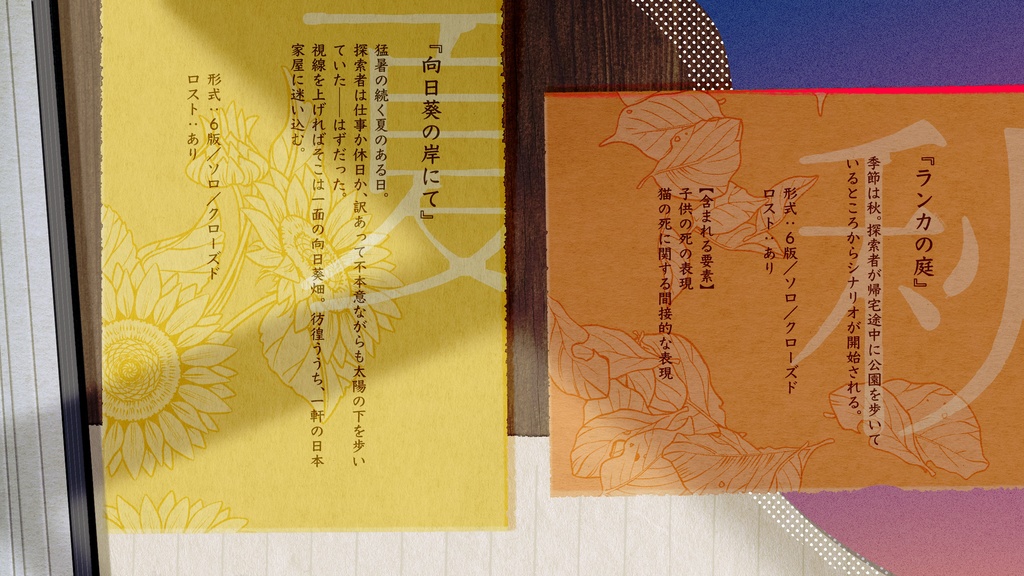 夏
『向日葵の岸にて』
猛暑の続く夏のある日。
探索者は仕事か休日か、訳あって不本意ながらも太陽の下を歩い
ていた――はずだった。
視線を上げればそこは一面の向日葵畑。彷徨ううち、一軒の日本
家屋に迷い込む。
形式:6版/ソロ/クローズド
ロスト:あり
秋
『ランカの庭』
季節は秋。探索者が帰宅途中に公園を歩いて
いるところからシナリオが開始される。
形式:6版/ソロ/クローズド
ロスト:あり
【含まれる要素】
子供の死の表現
猫の死に関する間接的な表現